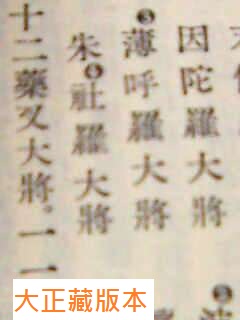 因陀羅大將
❸薄呼羅大將
朱❹社羅大將
十二藥叉大將。一一
大正藏版本